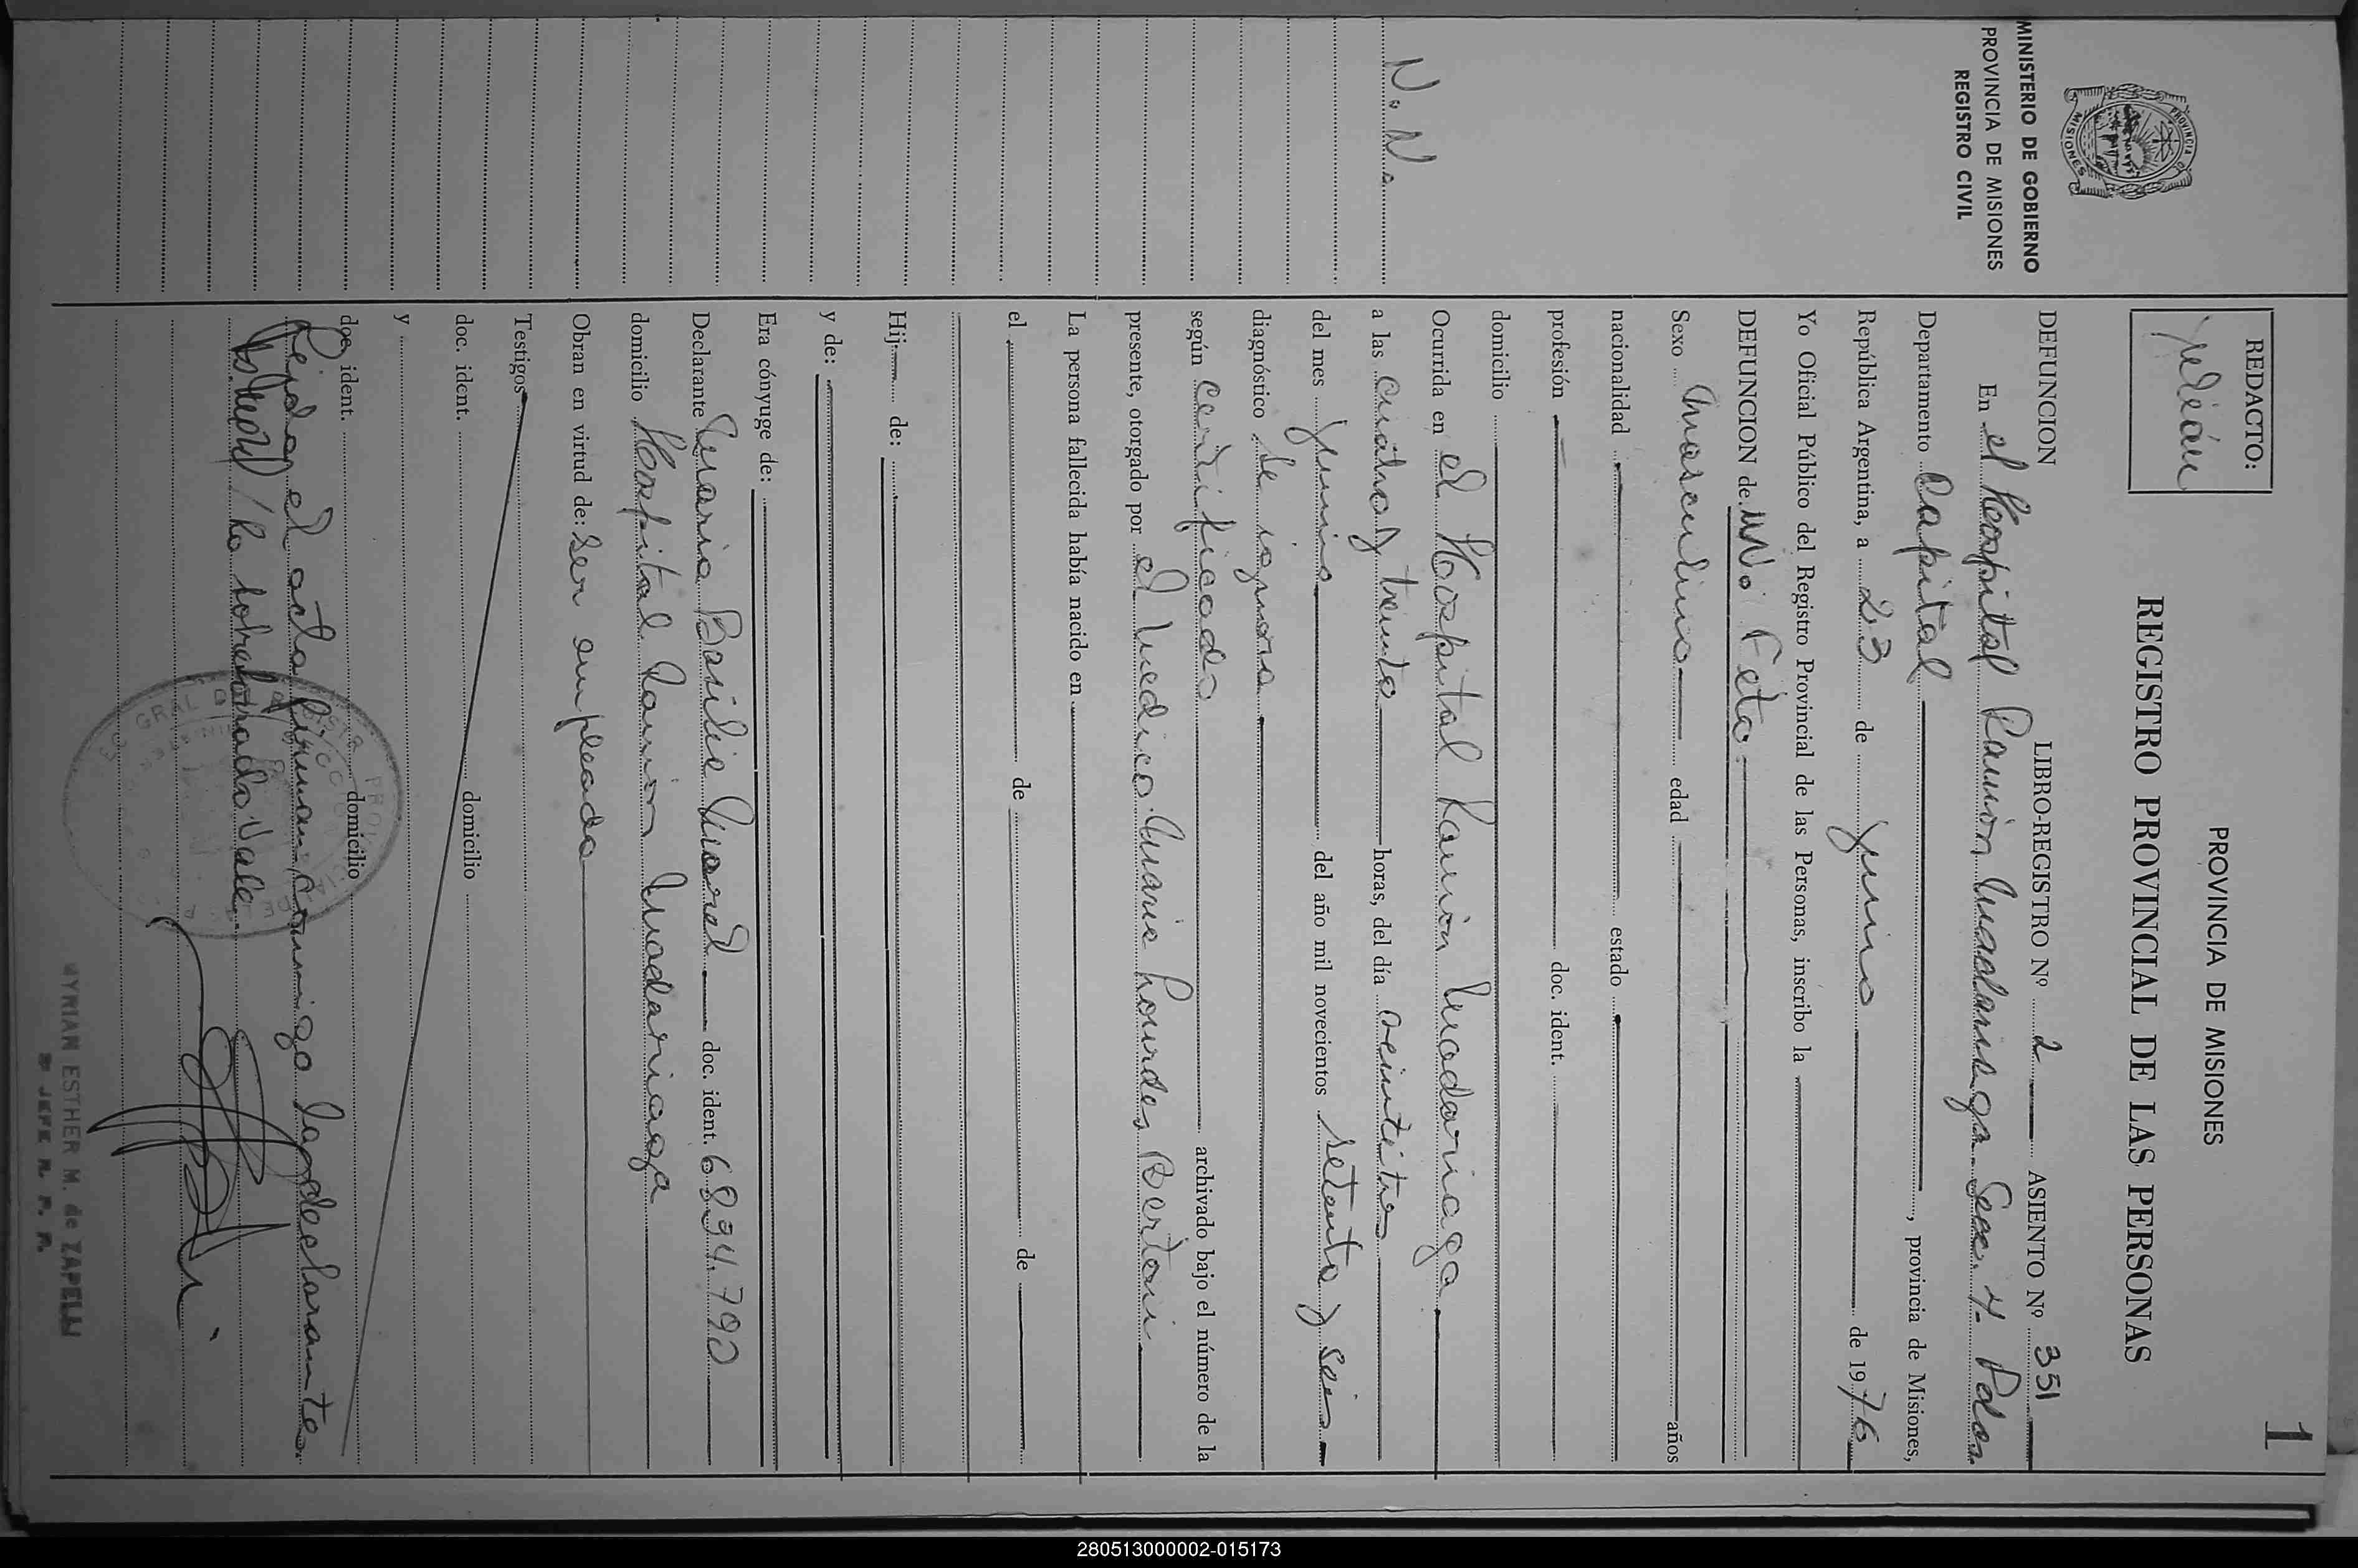 1
PROVINCIA DE MISIONES
REGISTRO PROVINCIAL DE LAS PERSONAS
REDACTO:
MINISTERIO DE GOBIERNO
PROVINCIA DE MISIONES
REGISTRO CIVIL
DEFUNCION LIBRO-REGISTRO Nº 2 ASIENTO Nº 331
En el Hospital Ramón Madariaga Secc. 4. Pdas.
Departamento Capital, provincia de Misiones,
República Argentina, a 23 de Junio de 1976
Yo Oficial Público del Registro Provincial de las Personas, inscribo la
DEFUNCION de NN. Feto
Sexo Masculino edad años
nacionalidad estado
profesión doc. ident.
domicilio
Ocurrida en el Hospital Ramón Madariaga
N. N.
a las cuatro y treinta horas, del día veintitres
del mes Junio del año mil novecientos setenta y seis
diagnóstico Se ignora
según certificado archivado bajo el número de la
presente, otorgado por el Medico Maria Lourdes Bertoni
La persona fallecida había nacido en
el de de
Hij de:
y de:
Era cónyuge de:
Declarante Maria Basilia Morel doc. ident. 6.894.790
domicilio Hospital Ramón Madariaga
Obran en virtud de: Ser empleada
Testigos
doc. ident. domicilio
y
doc. ident. domicilio
Leída el acta firman conmigo la declarante.
/ lo sobreborrado Vale.
MYRIAN ESTHER M. de ZAPELLI
JEFE R. P. P.
280513000002-015173